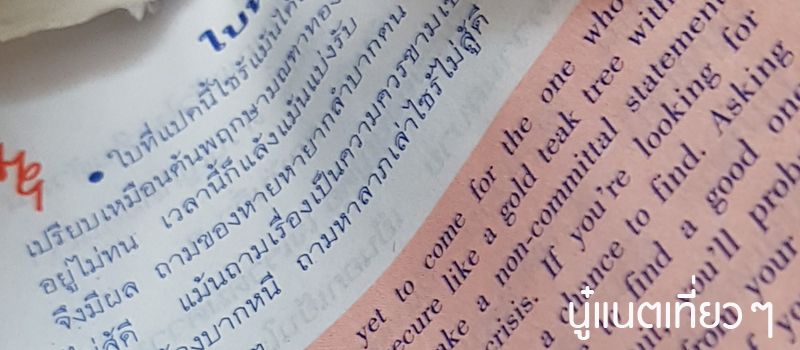 ใบที่
• ใบที่แปดนี้ไซร้แม้นได้
เปรียบเหมือนต้นพฤกษามณฑาทอง
อยู่ไม่ทน เวลานี้ก็แล้งแม้นแบ่งรับ
จึงมีผล ถามของหายหายากลำบากตน
ไม่สู้ดี แม้นถามเรื่องเป็นความควรขามเข
องปากหนี ถามหาลาภเล่าไซร้ไม่สู้ดี
yet to come for the one who
ecure like a gold teak tree with
ake a non-committal statement
crisis. If you're looking for
a chance to find. Asking
to find a good one
you'll prob
from your
if yo
นู๋แนตเที่ยว ๆ